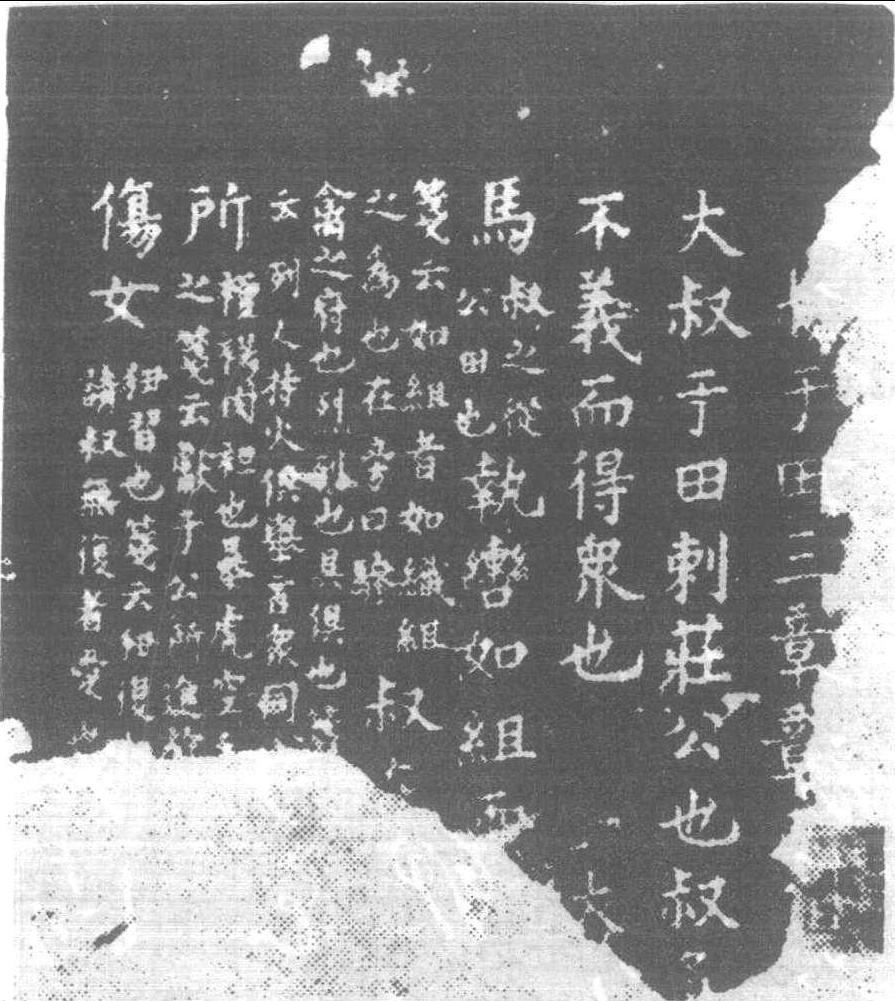 于田三章章
大叔于田刺莊公也叔
不義而得衆也 大
馬
叔之從
公田也
執轡如組兩
箋云如組者如織組
之為也在旁曰驂
叔
禽之府也列列也具俱也箋
云列人持火俱舉言衆同
所
襢裼肉袒也暴虎空手
之箋云獻于公所進於
傷女
狃習也箋云狃復
請叔無復者愛也